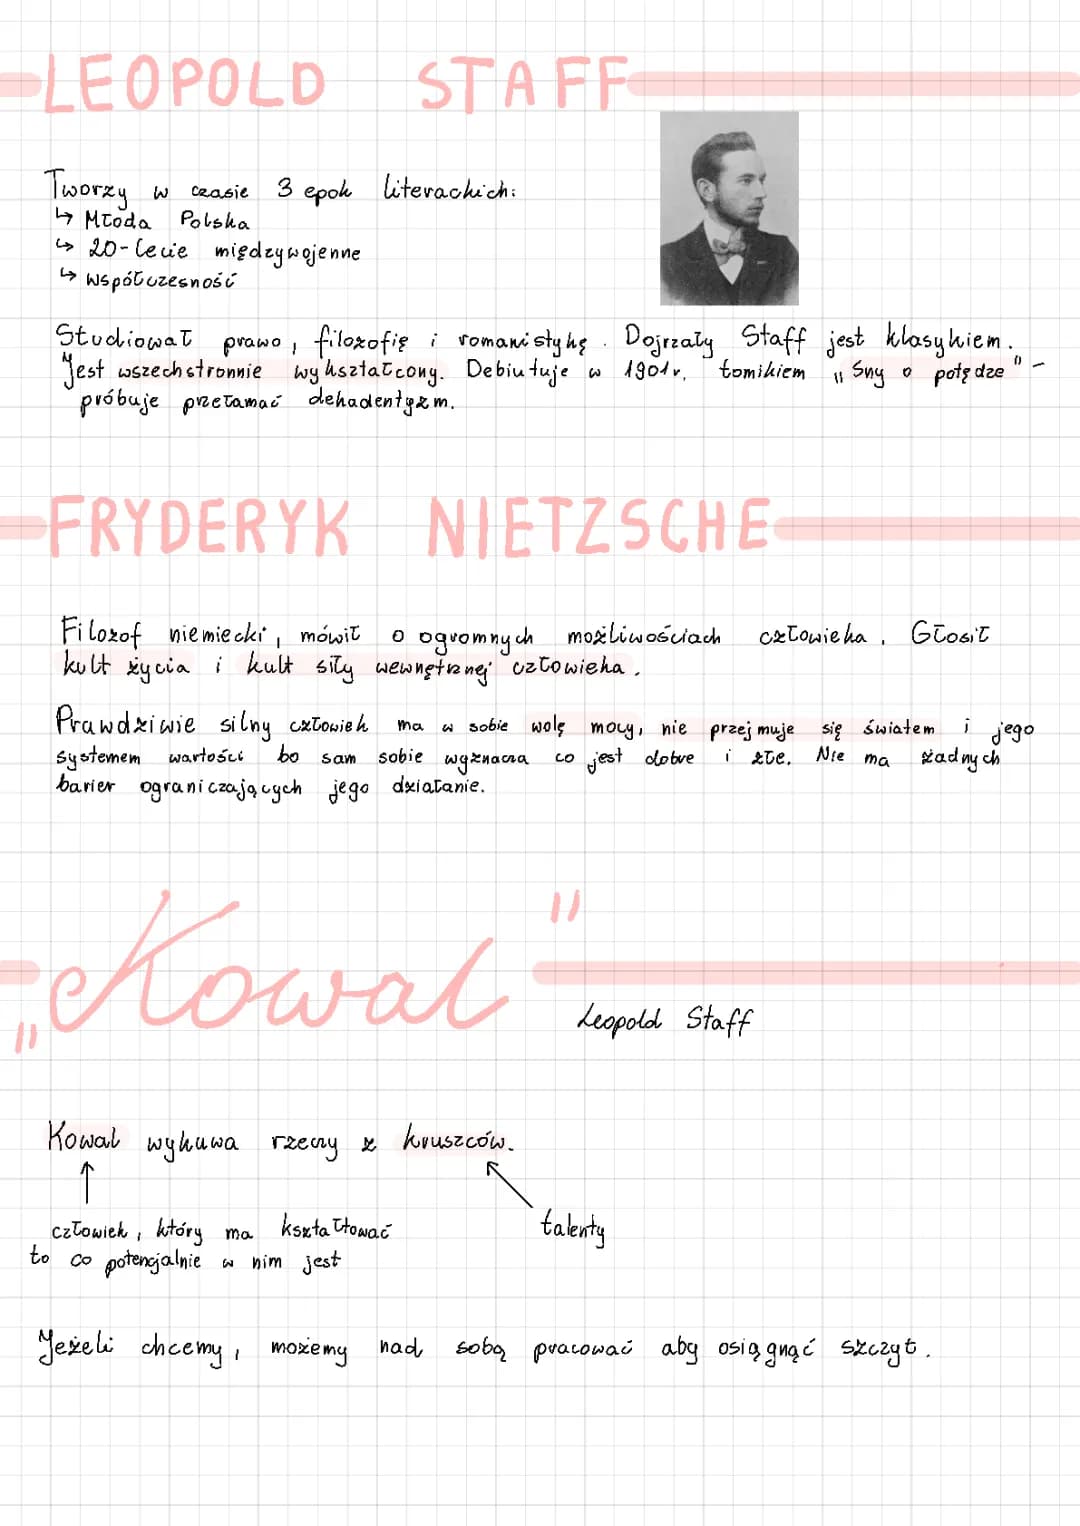 LEOPOLD STAFF
Tworzy w czasie 3 epok literackich:
↳ Młoda Polska
↳ 20-lecie międzywojenne
↳ współczesność
Studiował prawo, filozofię i romanistykę. Dojrzały Staff jest klasykiem.
Jest wszechstronnie wykształcony. Debiutuje w 1901r. tomikiem „Sny o potędze" -
próbuje przełamać dekadentyzm.
FRYDERYK NIETZSCHE
Filozof niemiecki, mówił o ogromnych możliwościach człowieka. Głosił
kult życia i kult siły wewnętrznej człowieka.
Prawdziwie silny człowiek ma w sobie wolę mocy, nie przejmuje się światem i jego
systemem wartości bo sam sobie wyznacza co jest dobre i złe. Nie ma żadnych
barier ograniczających jego działanie.
„Kowal"
Leopold Staff
Kowal wykuwa rzeczy z kruszców.
człowiek, który ma kształtować
to co potencjalnie w nim jest
talenty
Jeżeli chcemy, możemy nad sobą pracować aby osiągnąć szczyt.